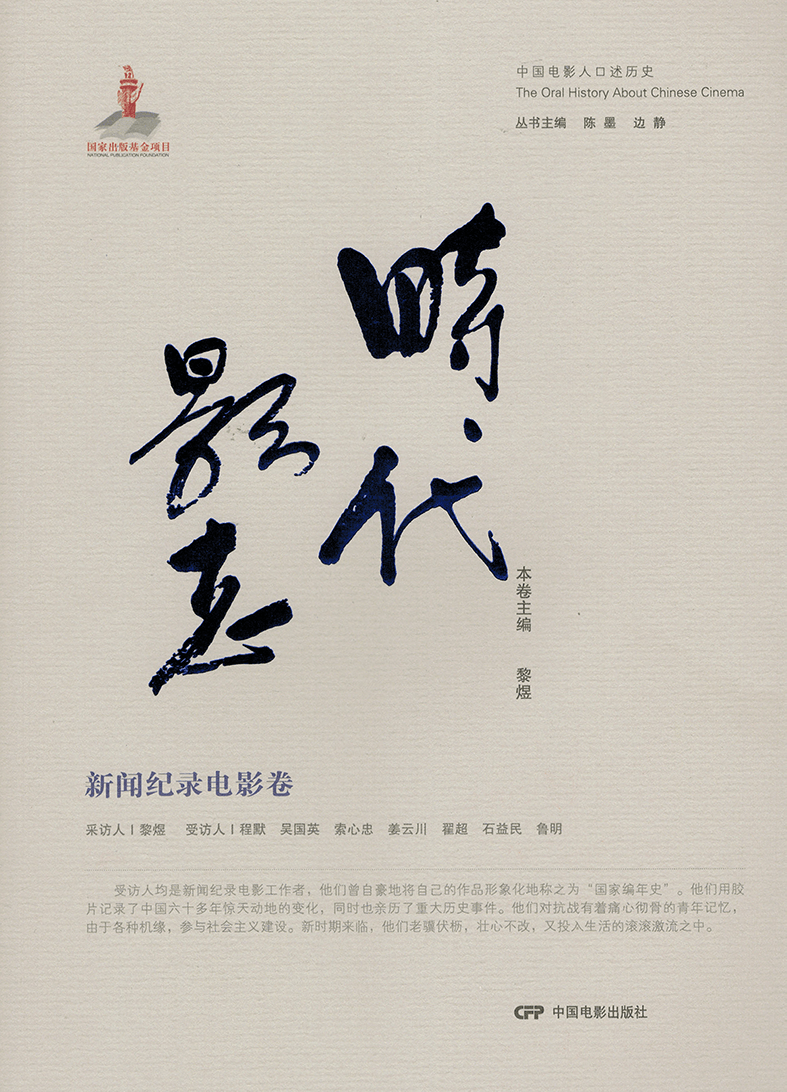 中国电影人口述历史
The Oral History About Chinese Cinema
丛书主编 陈墨 边静
国家出版基金项目
NATIONAL PUBLICATION FOUNDATION
時代
影志
本卷主编 黎煜
新闻纪录电影卷
采访人 | 黎煜 受访人 | 程默 吴国英 索心忠 姜云川 翟超 石益民 鲁明
受访人均是新闻纪录电影工作者，他们曾自豪地将自己的作品形象化地称之为“国家编年史”。他们用胶
片记录了中国六十多年惊天动地的变化，同时也亲历了重大历史事件。他们对抗战有着痛心彻骨的青年记忆，
由于各种机缘，参与社会主义建设。新时期来临，他们老骥伏枥，壮心不改，又投入生活的滚滚激流之中。
CFP 中国电影出版社